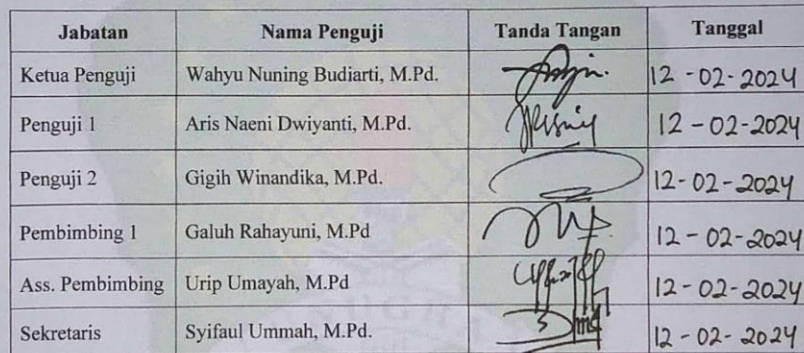 Jabatan Nama Penguji Tanda Tangan Tanggal
Ketua Penguji Wahyu Nuning Budiarti, M.Pd. 12-02-2024
Penguji 1 Aris Naeni Dwiyanti, M.Pd. 12-02-2024
Penguji 2 Gigih Winandika, M.Pd. 12-02-2024
Pembimbing 1 Galuh Rahayuni, M.Pd 12-02-2024
Ass. Pembimbing Urip Umayah, M.Pd 12-02-2024
Sekretaris Syifaul Ummah, M.Pd. 12-02-2024